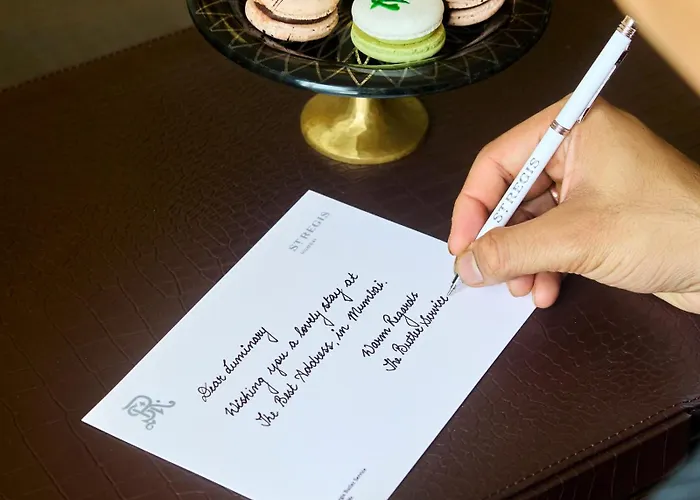 ST REGIS
MUMBAI
Dear Luminary
Wishing you a lovely stay at
The Best Address, in Mumbai.
Warm Regards
The Butler Service
ST REGIS
Regis Butler Service